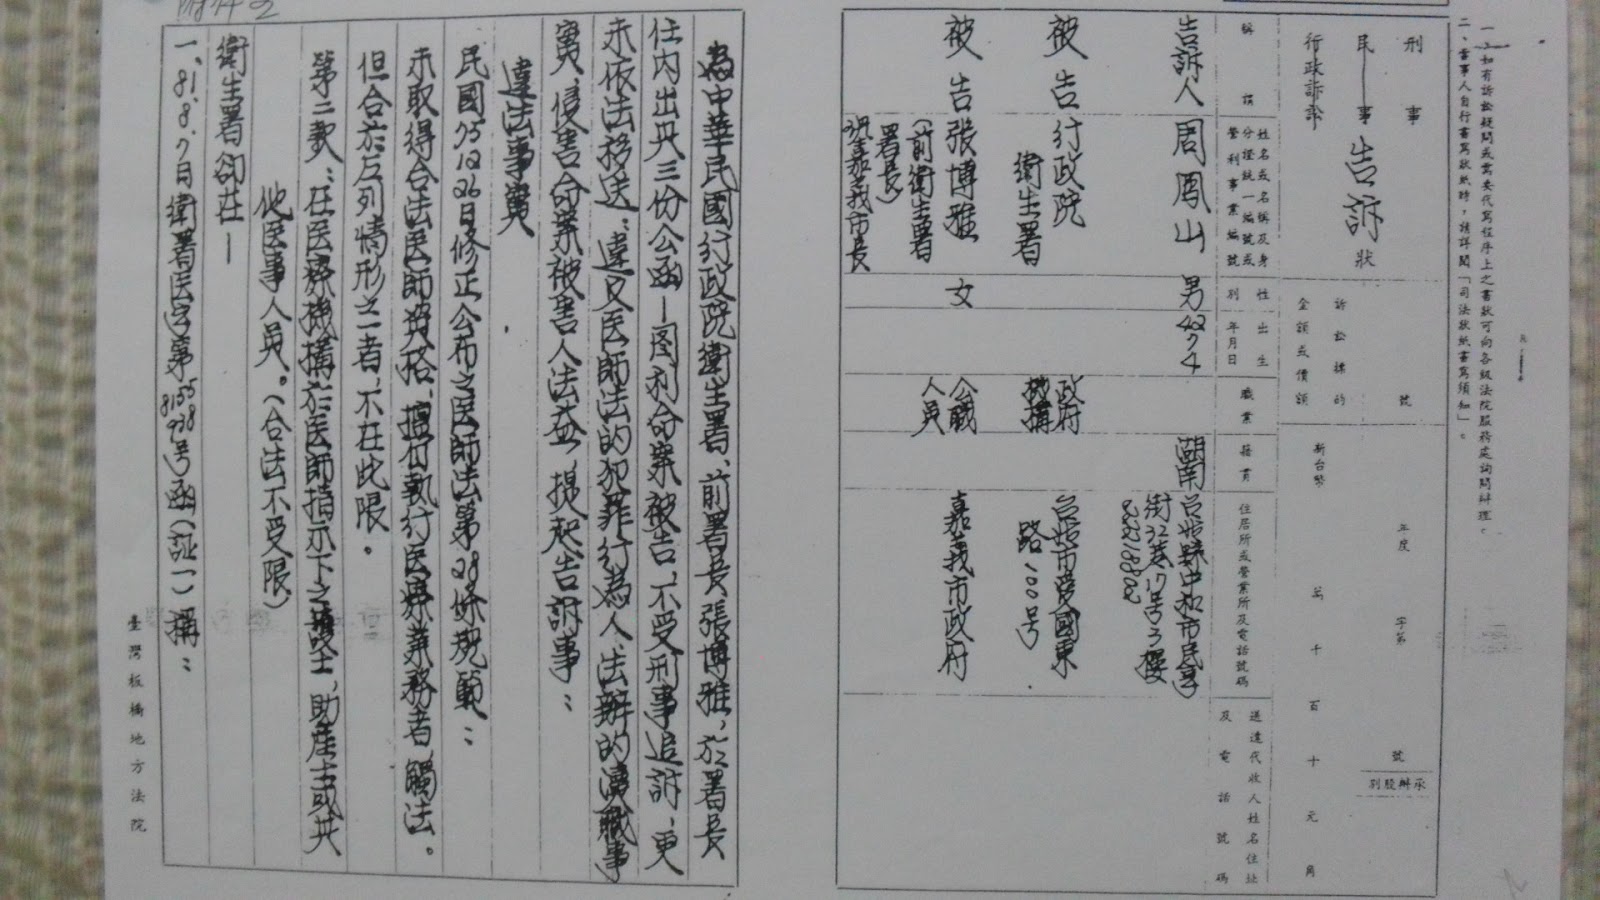 一、如有訴訟疑問或需委代寫程序上之書狀可向各級法院服務處詢問辦理。
二、當事人自行書寫狀紙時，請詳閱「司法狀紙書寫須知」。
刑事
民事
行政訴訟
告訴狀
號
年度
字第
號
承辦股別
訴訟標的
金額或價額
新台幣
萬
千
百
十
元
角
稱謂
姓名或名稱及身分證統一編號或營利事業編號
性別
出生年月日
職業
籍貫
住居所或營業所及電話號碼
送達代收人姓名住址及電話號碼
告訴人
周周山
男
42 7 4
湖南
台北縣中和市民享街32巷17号3樓
被告
行政院
衛生署
政府機構
台北市愛國東路100号
被告
張博雅
(前衛生署署長)
現嘉義市長
女
公職人員
嘉義市政府
為中華民國行政院衛生署、前署長張博雅，於署長
任內出具三份公函—图利命案被告、不受刑事追訴、更
未依法移送：違反医師法的犯罪行為人、法辦的瀆職事
實、侵害命案被害人法益、提起告訴事：
違法事實
民國75 12 26日修正公布之医師法第28條規範：
未取得合法医師資格、擅自執行医療業務者、觸法。
但合於左列情形之一者、不在此限。
第二款：在医療機構於医師指示下之護士、助產士或其
他医事人員。(合法不受限)
衛生署卻在—
一、81.8.7日衛署医字第8155938号函(証一)稱：
臺灣板橋地方法院